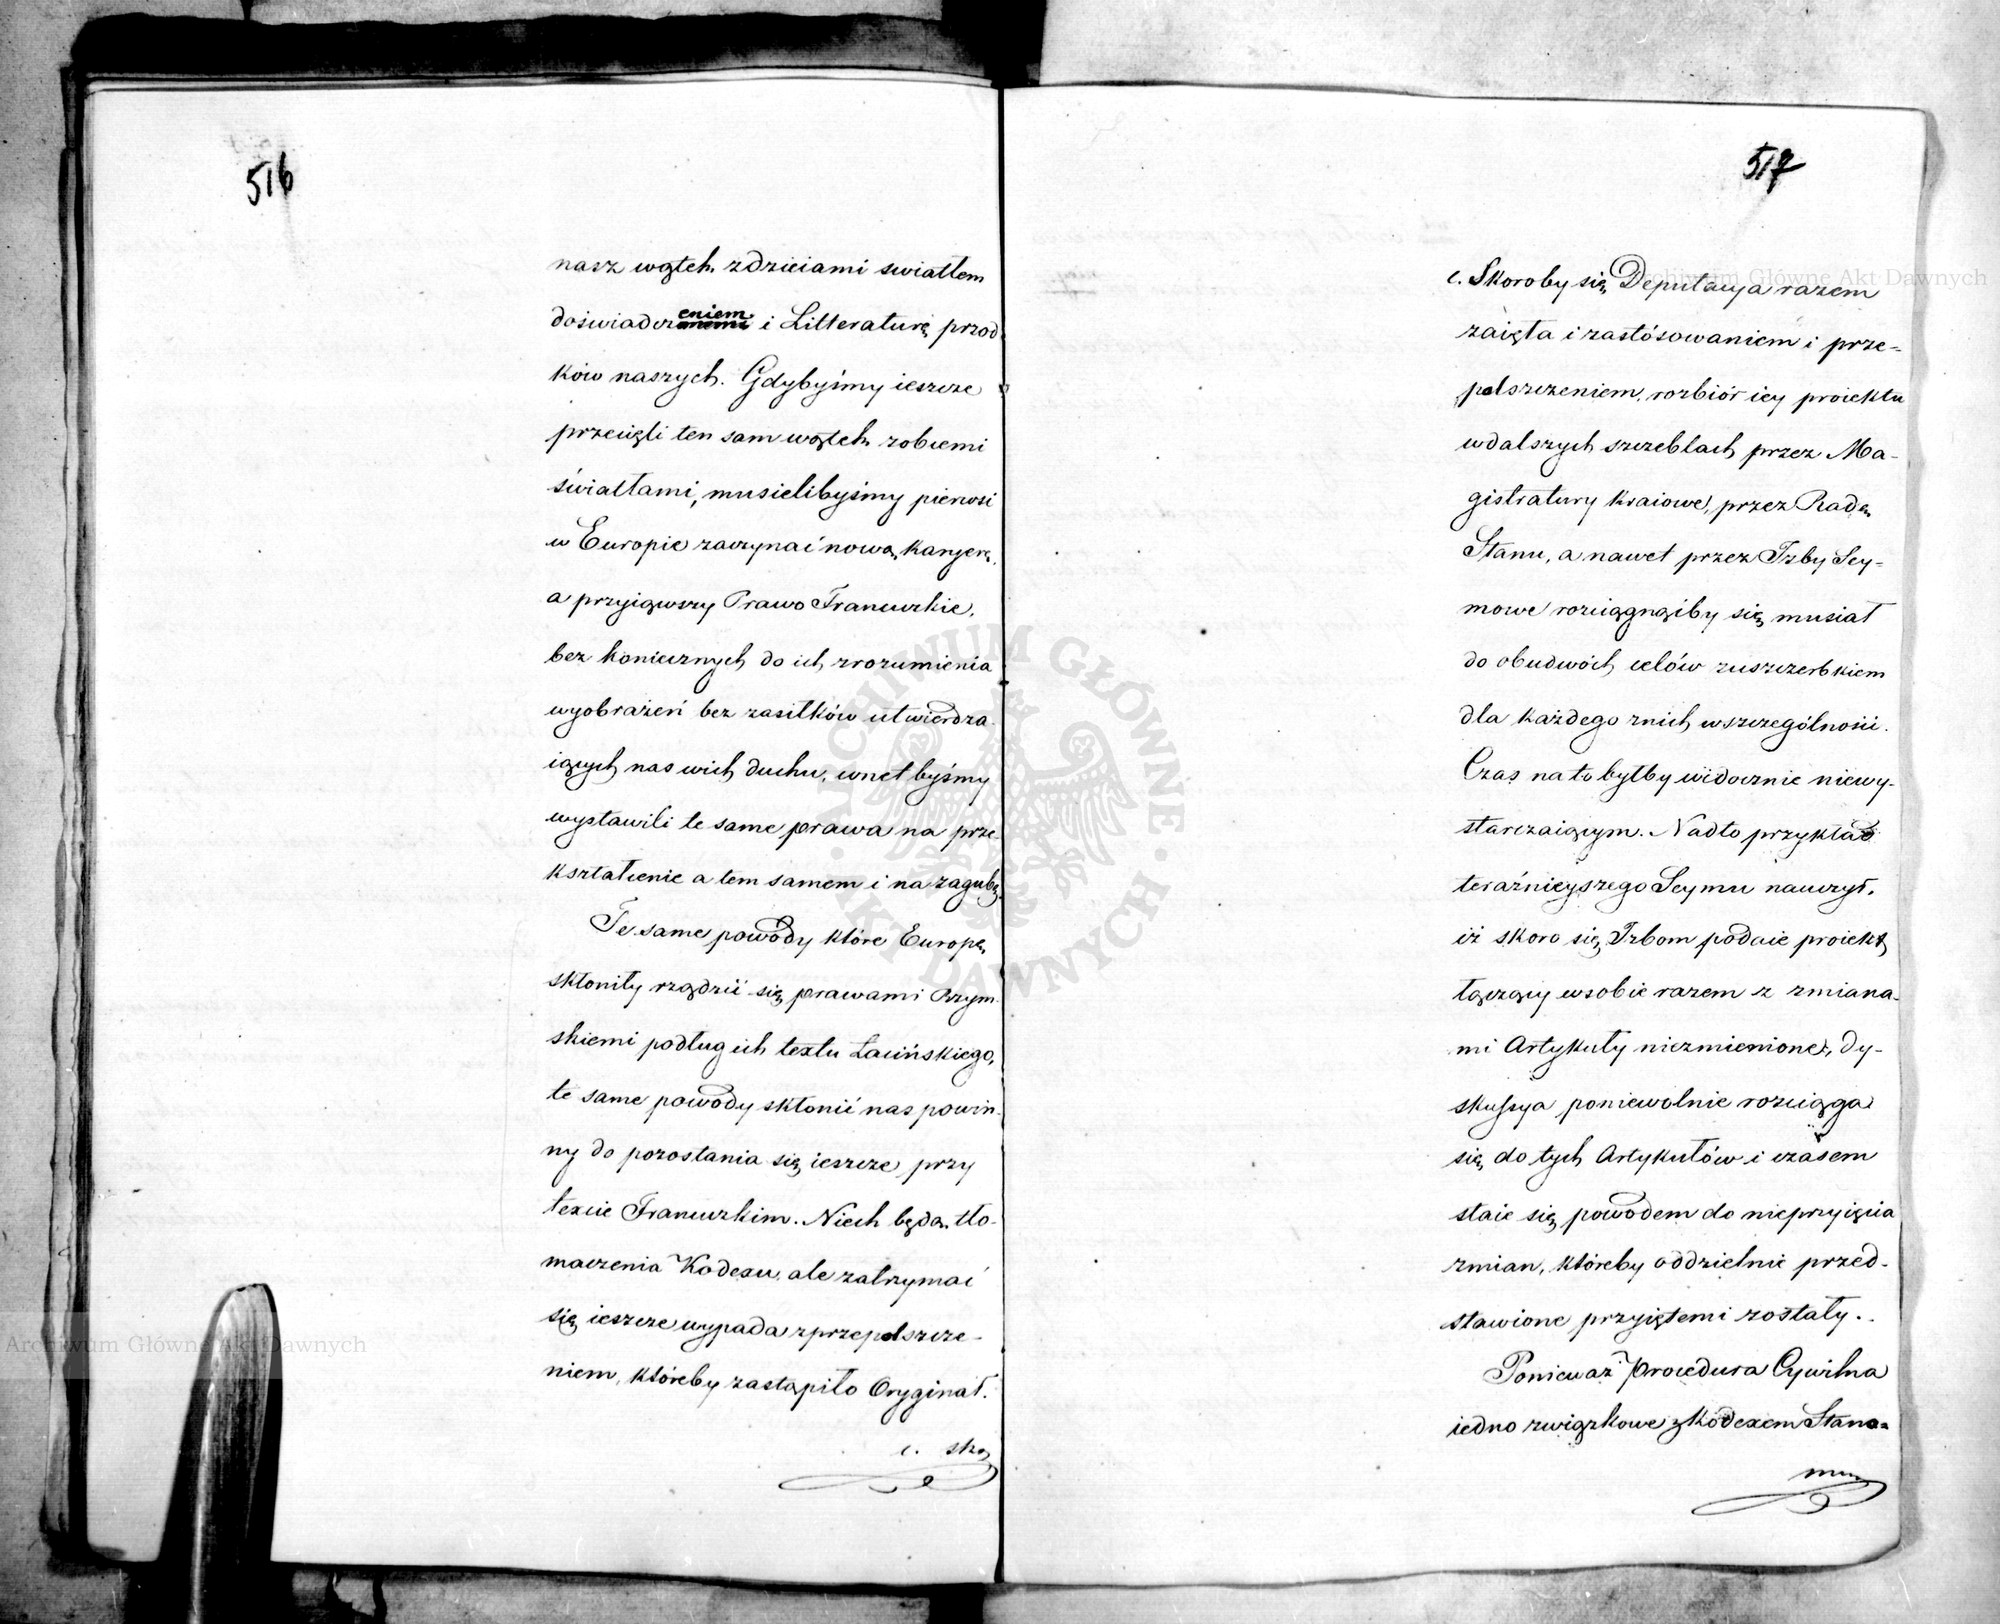 516
nasz wątek z dzieiami swiatłem
doświadczeniem i Litteraturą przod
ków naszych. Gdybyśmy ieszcze
przecięli ten sam wątek z obcemi
światłami, musielibyśmy pierwsi
w Europie zaczynać nową Karyerę,
a przyiąwszy Prawo Francuzkie,
bez koniecznych do ich zrozumienia
wyobrażeń bez zasiłków utwierdza
iących nas w ich duchu, wnet byśmy
wystawili te same prawa na prze
kształcenie a tem samem i na zagubę.
Te same powody które Europę
skłoniły rządzić się prawami Rzym
skiemi podług ich textu Łacińskiego,
te same powody skłonić nas powin
ny do pozostania się ieszcze przy
texcie Francuzkim. Niech będą tło-
maczenia Kodexu, ale zatrzymać
się ieszcze wypada z przepolszcze-
niem, któreby zastąpiło Oryginał.
c. sko
517
c. Skoroby się Deputacya razem
zaięta i zastósowaniem i prze-
polszczeniem, rozbiór iey proiektu
w dalszych szczeblach przez Ma-
gistratury kraiowe, przez Radę
Stanu, a nawet przez Izby Sey-
mowe rozciągnąćby się musiał
do obudwóch celów z uszczerbkiem
dla każdego z nich w szczególności.
Czas na to byłby widocznie niewy-
starczaiącym. Nadto przykład
teraźnieyszego Seymu nauczył,
iż skoro się Izbom podaie proiekt
łączący w sobie razem z zmiana-
mi Artykuły niezmienione, dy-
skussya poniewolnie rozciąga
się do tych Artykułów i czasem
staie się powodem do nieprzyięcia
zmian, któreby oddzielnie przed-
stawione przyiętemi zostały.
Ponieważ Procedura Cywilna
iedno związkowe z Kodexem Stano-
Archiwum Główne Akt Dawnych
Archiwum Główne Akt Dawnych
ARCHIWUM GŁÓWNE · AKT DAWNYCH ·